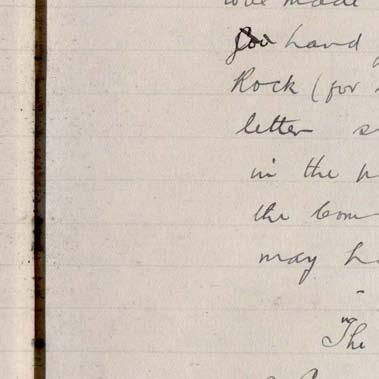 made
you hand
Rock (for
letter s
in the p
the Com
may ha
"The